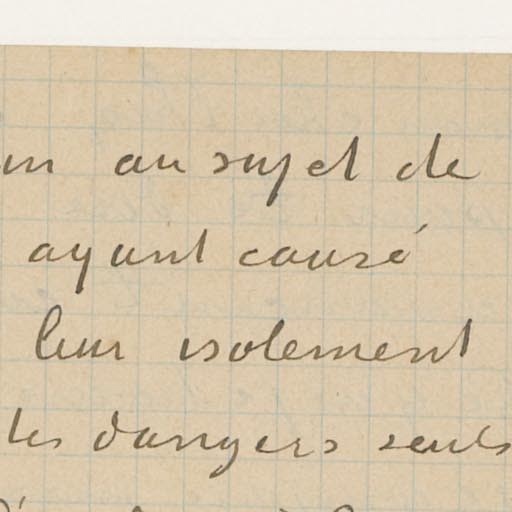 au sujet de
ayant causé
leur isolement
les dangers seuls